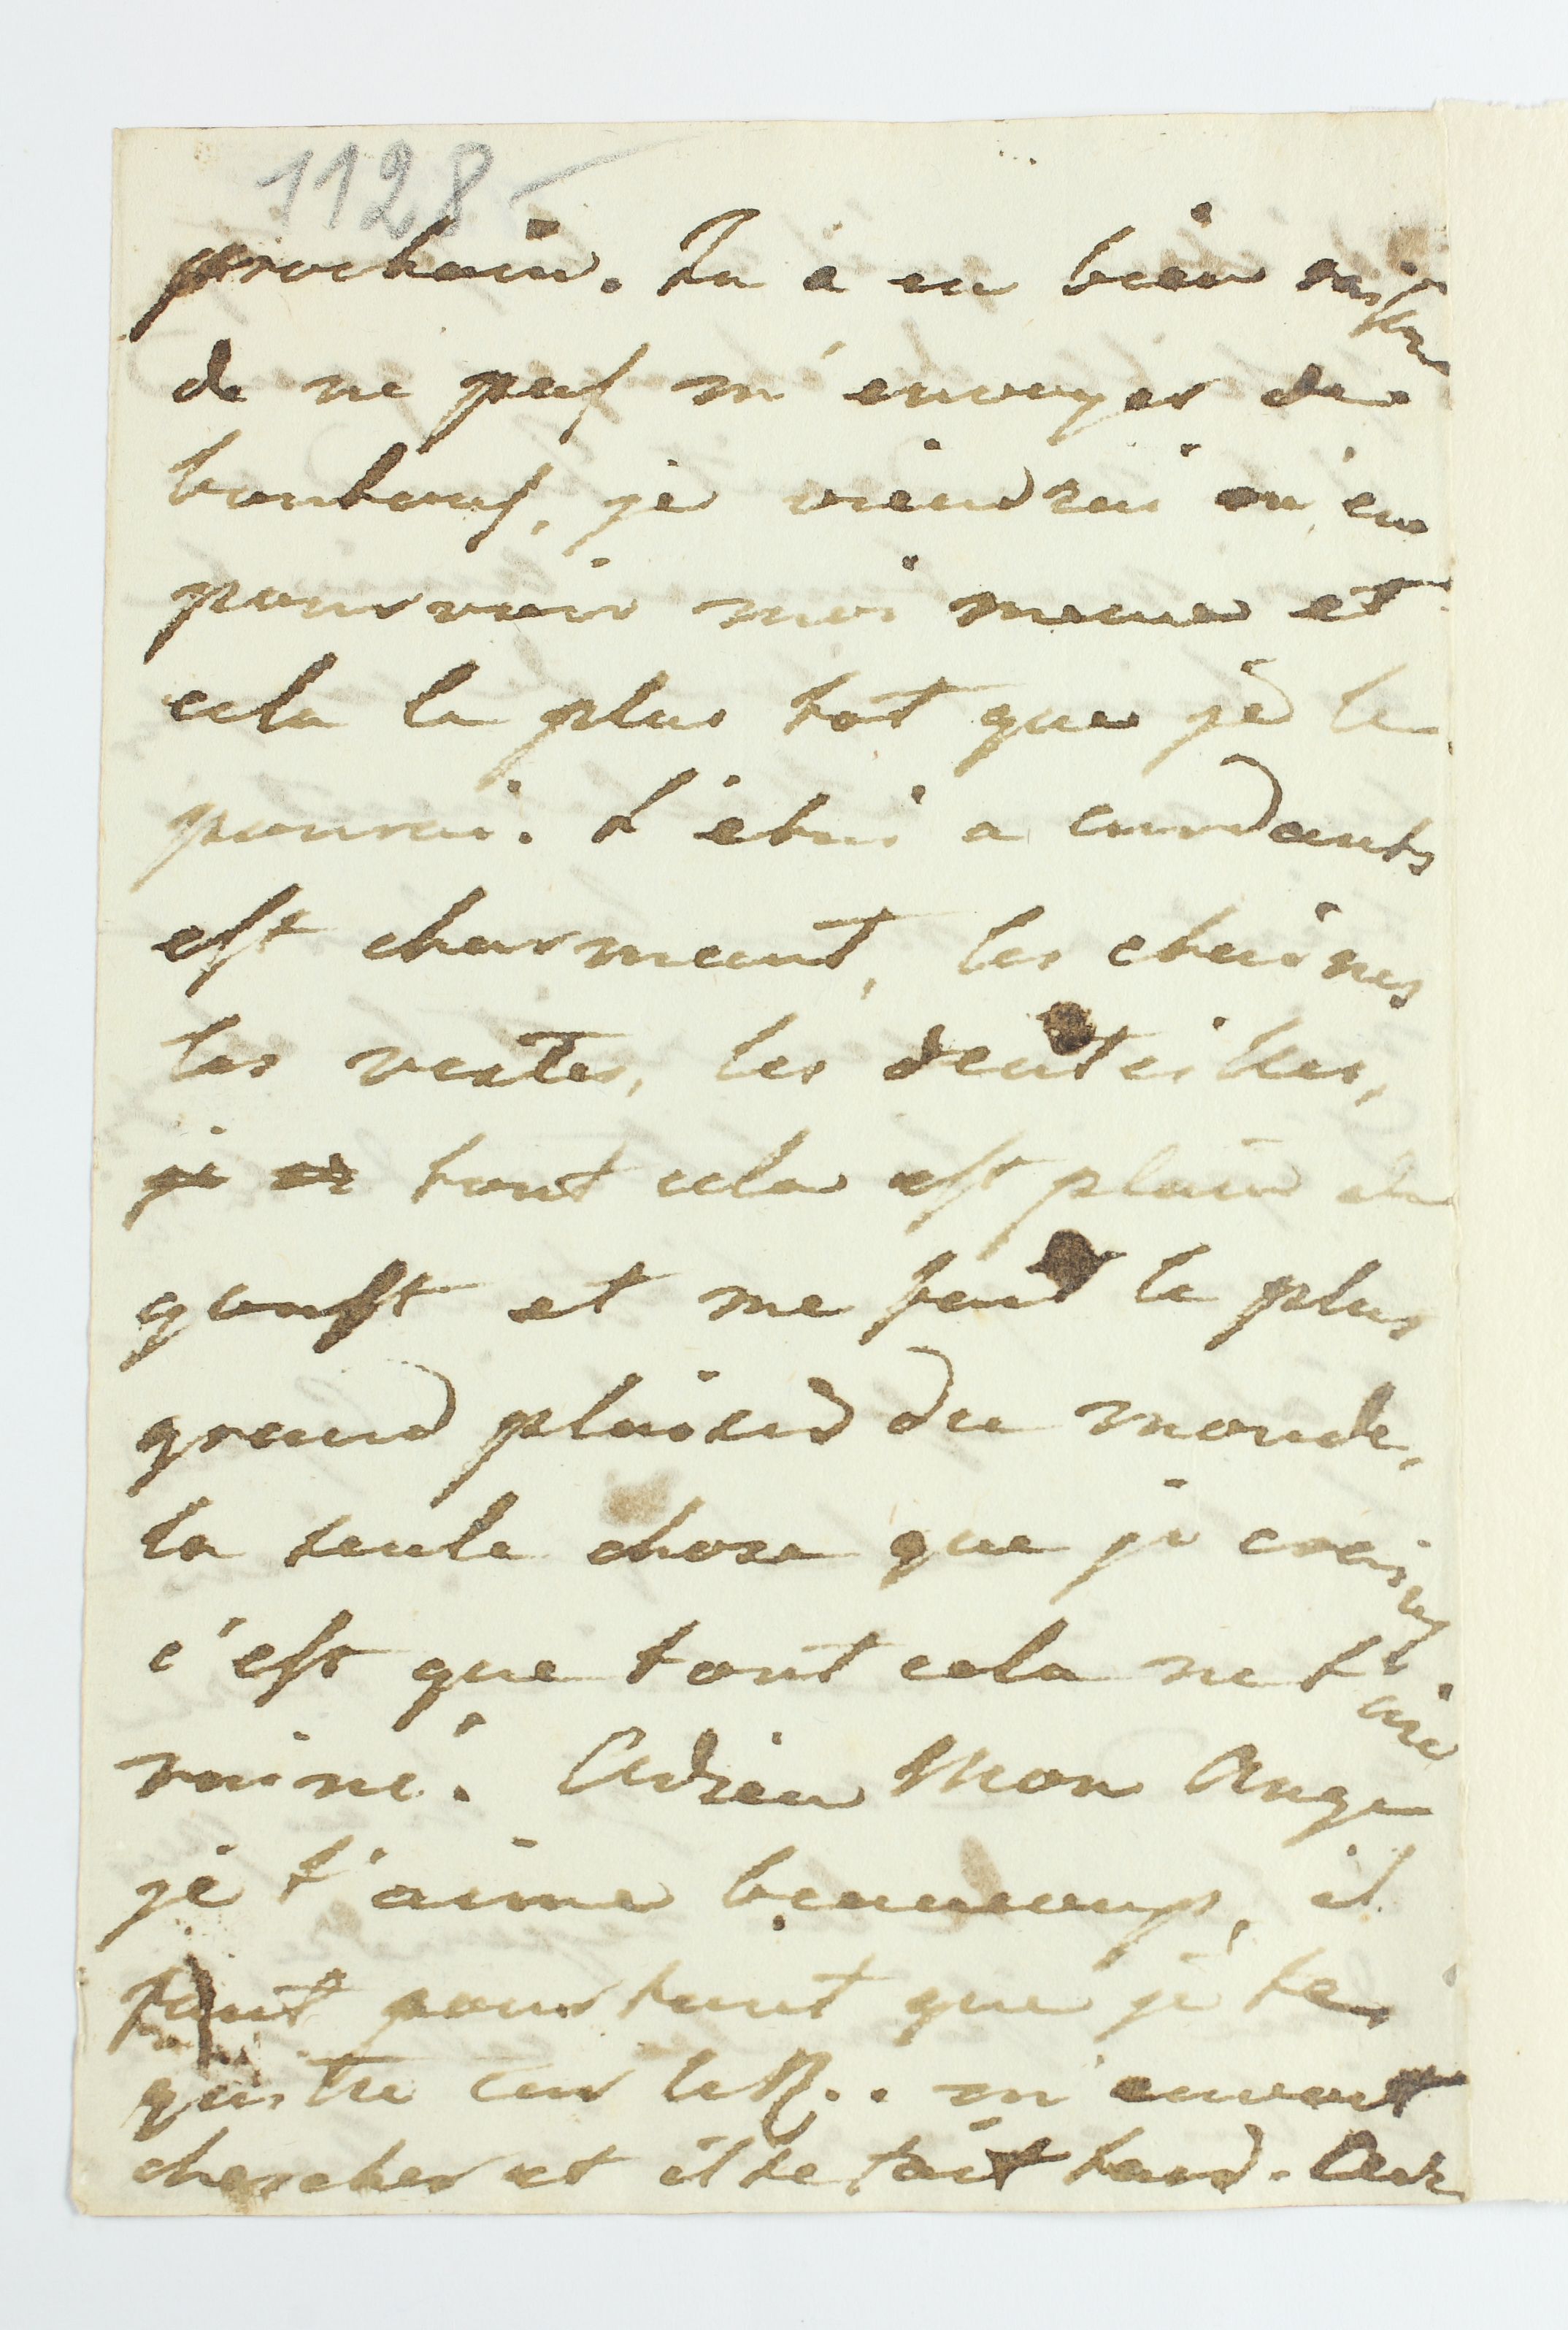 1128
prochain. Tu a eu bien raison
de ne pas m'envoyer de
bonbons, je viendrai m'en
pourvoir moi meme et
cela le plus tot que je le
pourai. L'étui a curdants
est charmant, les chaines
les vestes, les denteilles,
je tout cela est plain de
goust et me fait le plus
grand plaisir du monde,
la seule chose que je crains
c'est que tout cela ne t'aie
rainé. Adieu Mon Ange
je t'aime beaucoup, il
faut pourtant que je te
quitte car le R.. m'envoit
chercher et il se fait tard.